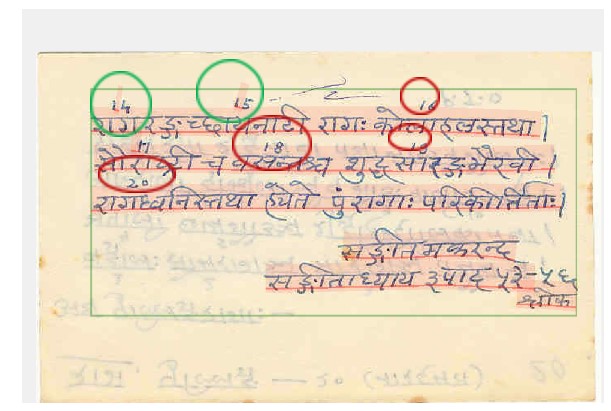 14 15 16
रागरङ्गच्छायनाटी रागः कोलाहलस्तथा |
17 18 19
सौराष्ट्री च वसन्तश्च शुद्धसारङ्गभैरवी |
20
रागध्वनिस्तथा ह्येते पुंरागाः परिकीर्तिताः |
सङ्गीत मकरन्द
सङ्गीताध्याय ३ पाद ५३-५६
श्लोक